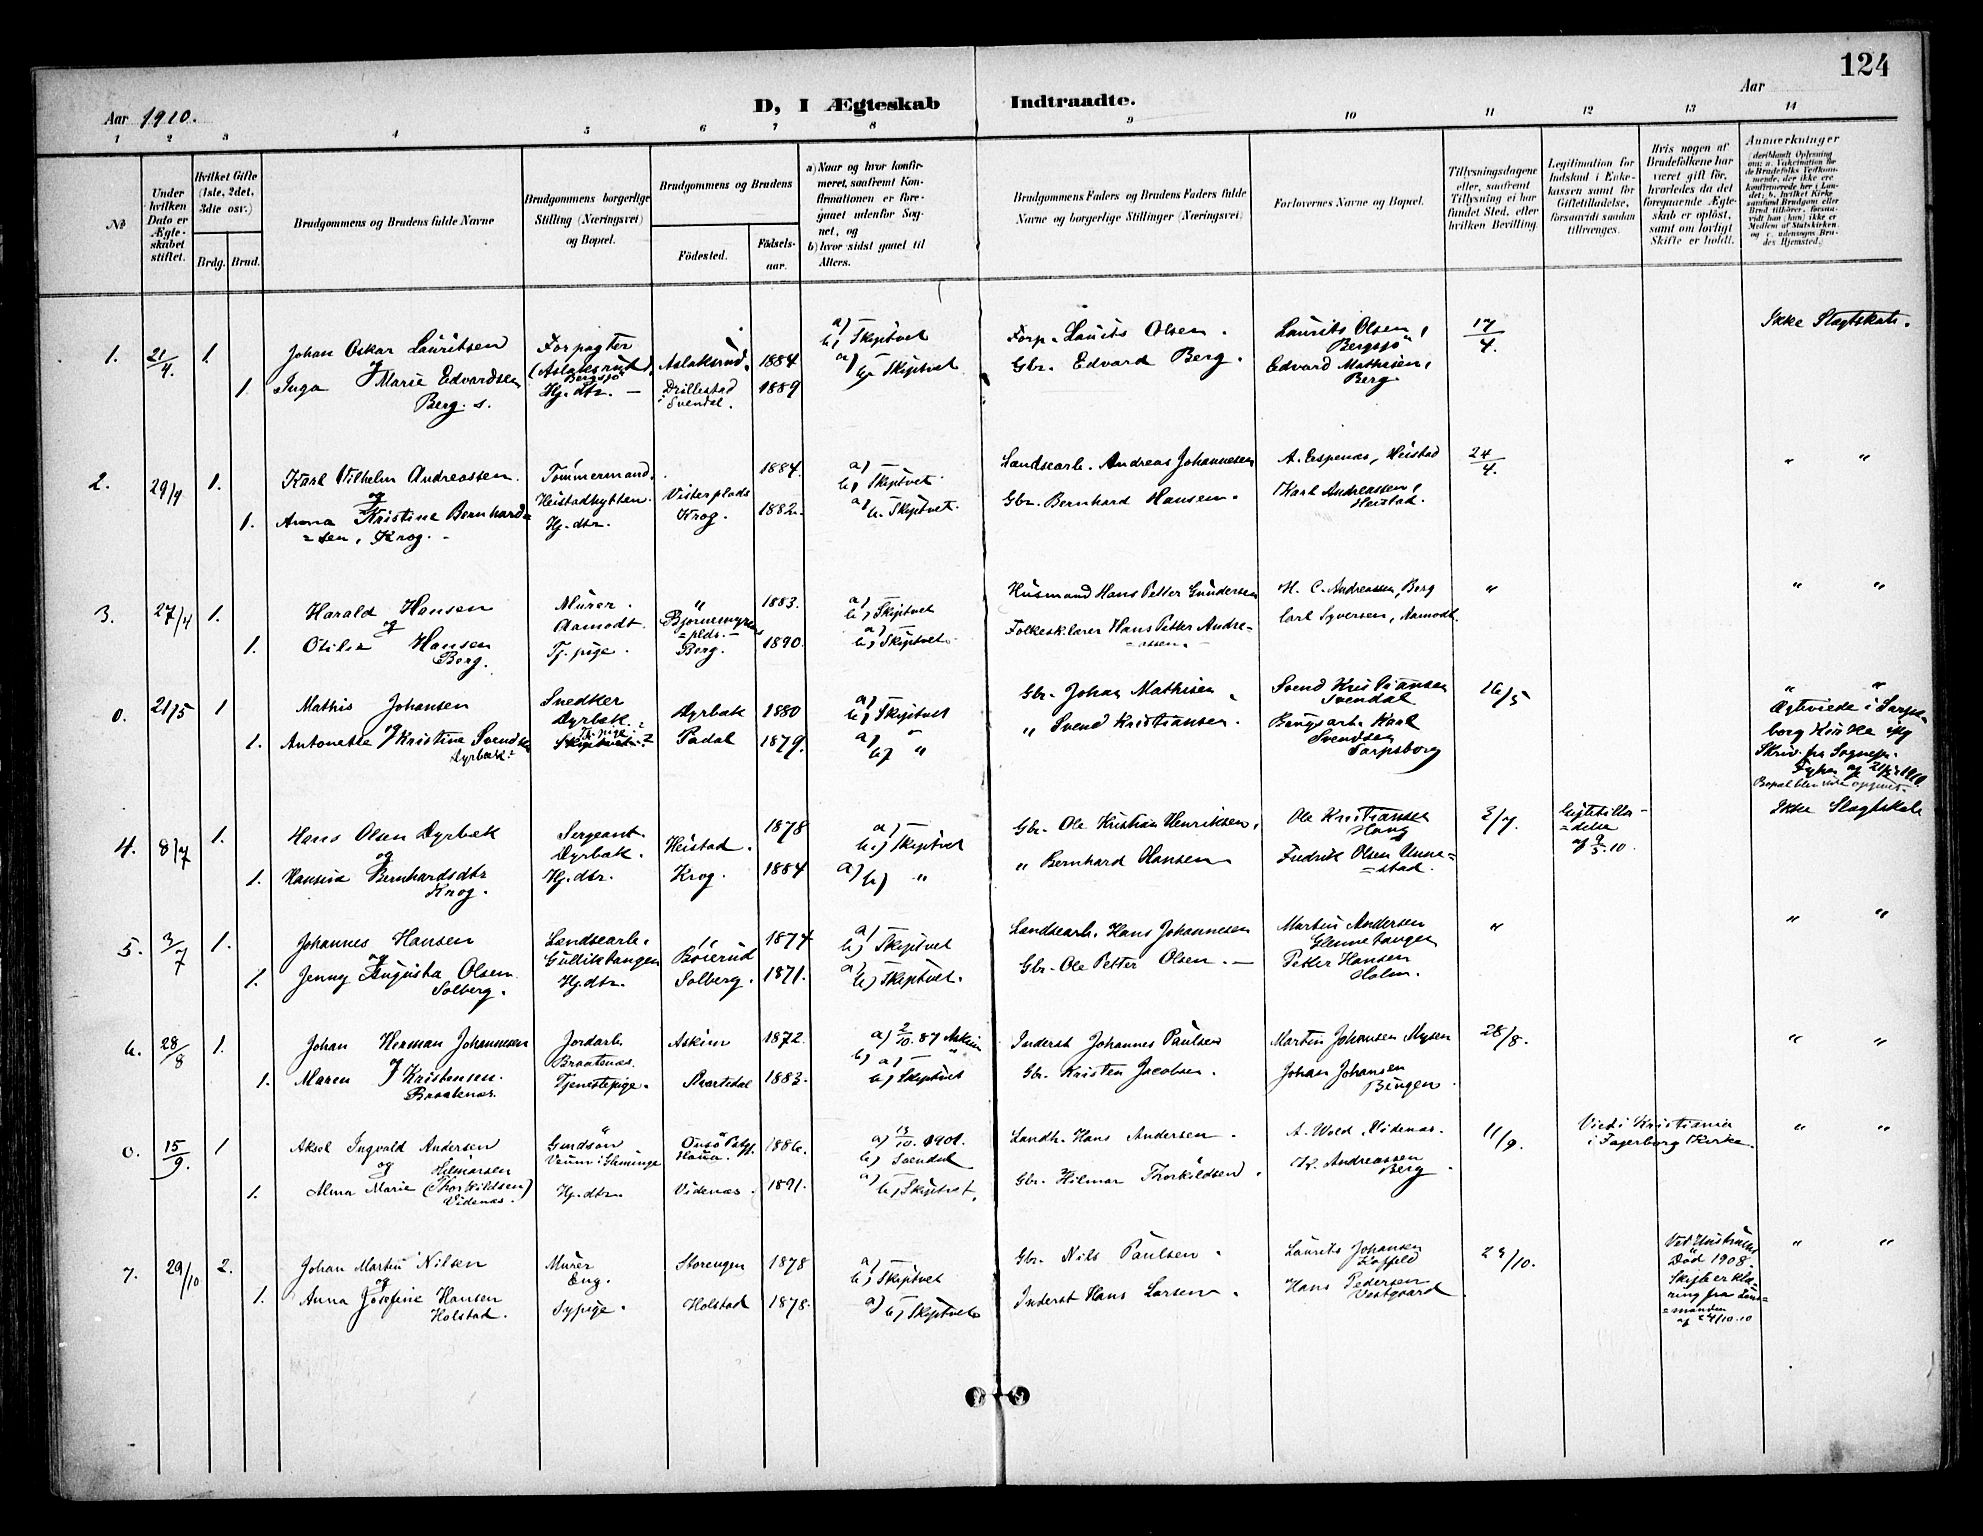 124
Aar 1910.
D, I Ægteskab Indtraadte.
Aar
1 2 3 4 5 6 7 8 9 10 11 12 13 14
No
Under hvilken Dato er Ægteskabet stiftet.
Hvilket Gifte (1ste, 2det, 3die osv.)
Brdg. Brud.
Brudgommens og Brudens fulde Navne
Brudgommens borgerlige Stilling (Næringsvei) og Bopæl.
Brudgommens og Brudens
Födested. Födselsaar.
a) Naar og hvor konfirmeret, saafremt Konfirmationen er foregaaet udenfor Sognet, og
b) hvor sidst gaaet til Alters.
Brudgommens Faders og Brudens Faders fulde Navne og borgerlige Stillinger (Næringsvei)
Forlovernes Navne og Bopæl.
Tillysningsdagene eller, saafremt Tillysning ei har fundet Sted, efter hvilken Bevilling.
Legitimation for Indskud i Enkekassen samt for Giftetilladelse, forsaavidt saadan tiltrænges.
Hvis nogen af Brudefolkene har været gift för, hvorledes da det foregaaende Ægteskab er oplöst, samt om lovligt Skifte er holdt.
Anmærkninger
1. 21/4. 1. Johan Oskar Lauritsen Forpagter Aslaksrud. 1884 a) — b) Skiptvet Forp. Laurits Olsen. Laurits Olsen, Bergsjö 17/4. Ikke Slagtskab.
og (Aslaksrud) Bergsjö
1. Inga Marie Edvardsen Berg. s. Hj. dtr. — Drillestad Svendal. 1889 a) — b) Skiptvet Gbr. Edvard Berg. Edvard Mathisen, Berg.
2. 29/4 1. Karl Vilhelm Andreassen. Tömmermand, Heistadhytten. 1884. a) — b) Skiptvet. Landsearb. Andreas Johannesen A. Espenæs, Heistad 24/4. " "
og
1. Anna Kristine Bernhard=sen, Krog. Hj. dtr. Krog. 1882. a) — b. Skiptvet. Gbr. Bernhard Hansen. Karl Andreassen, Heistad.
3. 27/4 1. Harald Hansen Murer. Aamodt. " 1883. a) — b) Skiptvet Husmand Hans Petter Gundersen H. C. Andreassen, Berg " " "
og
1. Otilie Hansen Berg. Tj. pige. Berg. 1890. a) — b) Skiptvet. Folkesklærer Hans Petter Andre=assen. Carl Syversen, Aamodt.
0. 21/5 1 Mathis Johansen Snedker Dyrbæk Dyrbæk 1880 a) — b) Skiptvet Gbr. Johan Mathisen Svend Kristiansen Svendal 16/5 " "
og
1. Antonette Kristine Svendsen Dyrbæk Padal 1879. a) — b) " " Svend Kristiansen. Karl Svendsen Sarpsborg
Ægteviede i Sarpsborg Kirke
4. 8/7 1. Hans Olsen Dyrbæk Sergeant. Dyrbæk. Heistad. 1878 a) — b.) Skiptvet Gbr. Ole Kristian Henriksen, Ole Kristiansen Haug 3/7. Giftetilla=delse Ikke Slagtskab
og
1. Hansine Bernhardsdtr Krog. Hj. dtr. Krog. 1884 a) — b) " " Bernhard Hansen Fredrik Olsen Unne=stad.
5. 3/7 1. Johannes Hansen Landsearb. Gulliktangen Böierud 1874 a) — b) Skiptvet Landsearb. Hans Johannesen Martin Andersen Glennetangen " " "
og
1. Jenny Augusta Olsen Solberg. Hj. dtr. Solberg. 1871. a) — b) Skiptvet. Gbr. Ole Petter Olsen. — Petter Hansen Holm.
6. 28/8 1. Johan Herman Johannesen Jordarb. Braatenæs. Askim 1872. a) 2/10. 87 Askim b) " Inderst Johannes Paulsen Martin Johansen Mysen 28/8. " "
og
1. Maren Kristensen. Braatenæs. Tjenestepige. 1883. a) — b) Skiptvet Gbr. Kristen Jacobsen. Johan Johansen Bingen.
0. 15/9. 1 Aksel Ingvald Andersen Veum i Glemminge 1886. a) 13/10. 1901. b) Svendal Landh. Hans Andersen. A. Wold, Videnæs. 11/9. Viet i Kristiania i Fagerborg Kirke. " "
og Hilmarsen
1. Alma Marie (Thorkildsen) Videnæs. Hj. dtr. Videnæs. 1891. a) — b) Skiptvet, Gbr. Hilmar Thorkildsen. Kr. Andreassen Berg.
7. 29/10 2. Johan Martin Nilsen Murer Eng. Storengen 1878 a) — b) Skiptvet Gbr. Nils Paulsen. Laurits Johansen Kopfeld 23/10. Död 1908. " "
og
1. Anna Josefine Hansen Holstad. Sypige. Holstad. 1878. a) — b) Skiptvet Inderst Hans Larsen. Hans Pedersen Vestgaard
Skifteerklæring fra Lens=manden af 24/10.10